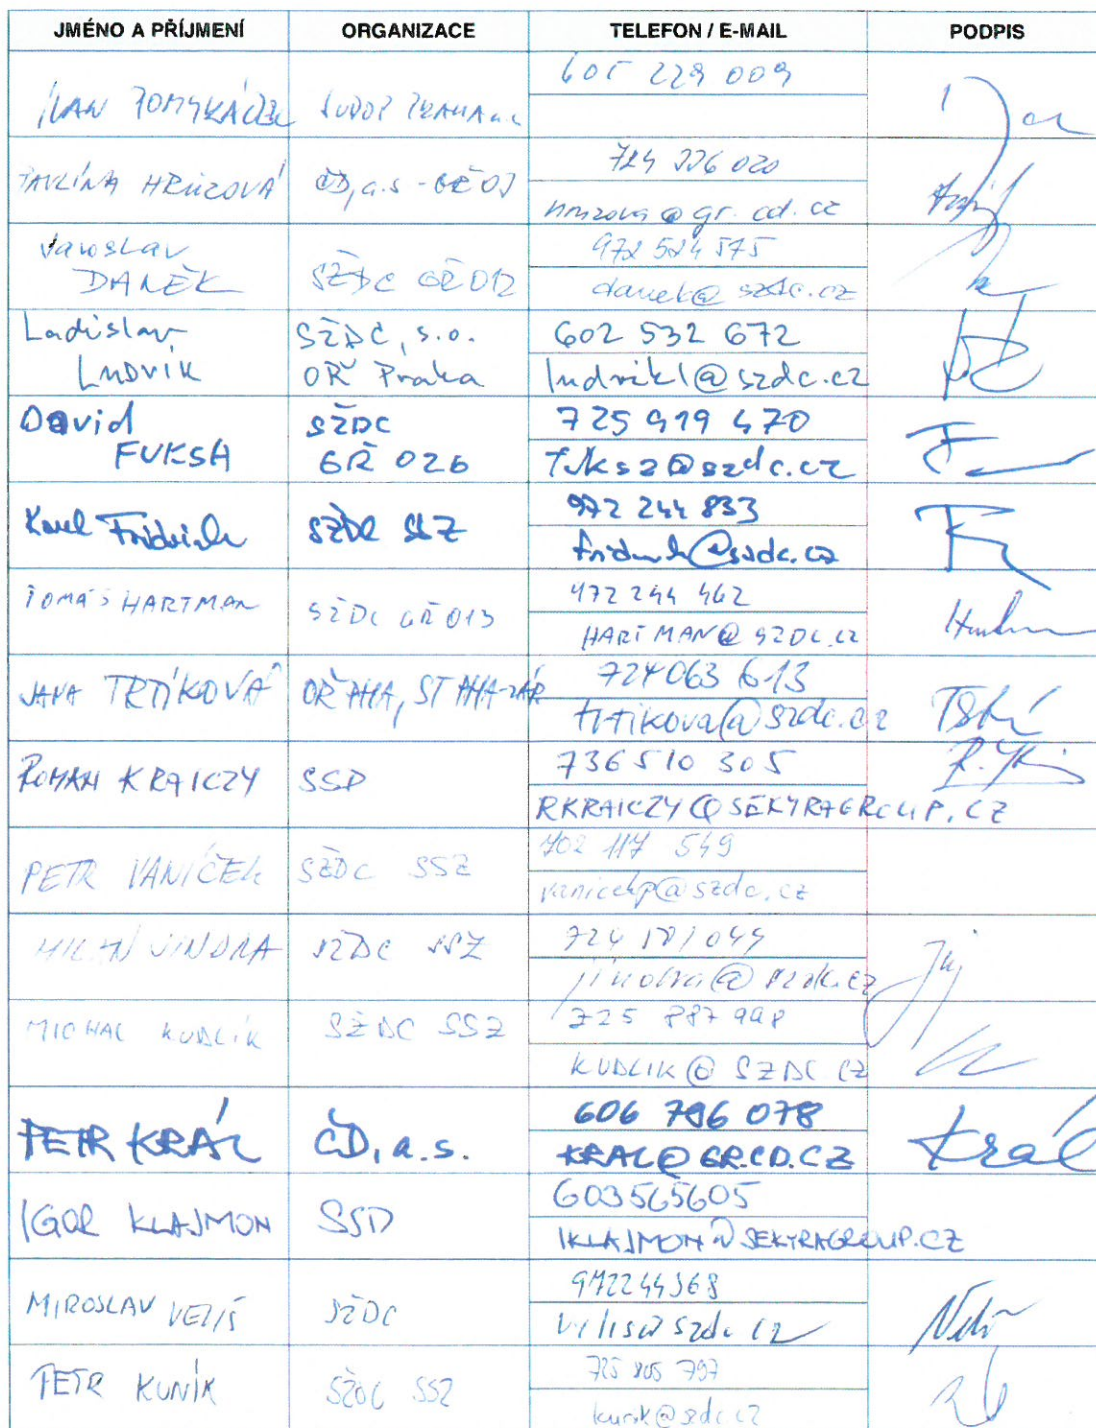 JMÉNO A PŘÍJMENÍ ORGANIZACE TELEFON / E-MAIL PODPIS
605 229 009
SUDOP PRAHA a.s.
724 226 020
PAVLÍNA HRŮZOVÁ ČD, a.s - GŘ O7
hruzova@gr.cd.cz
Jaroslav 972 524 575
DANĚK SŽDC GŘ O12 danek@szdc.cz
Ladislav SŽDC, s.o. 602 532 672
LUDVÍK OŘ Praha ludvikl@szdc.cz
David SŽDC 725 919 470
FUKSA GŘ O26 fuksa@szdc.cz
Karel Fridrich SŽDC SSZ 972 244 833
fridrich@szdc.cz
TOMÁŠ HARTMAN SŽDC GŘ O13 972 244 462
HARTMAN@SZDC.CZ
JANA TRTÍKOVÁ OŘ PHA, ST PHA-ZÁP 724 063 613
trtikova@szdc.cz
ROMAN KRAICZY SSD 736 510 305
RKRAICZY@SEKYRAGROUP.CZ
PETR VANÍČEK SŽDC SSZ 702 117 549
vanicekp@szdc.cz
MILAN JINDRA SŽDC SSZ
jindra@szdc.cz
MICHAL KUDLÍK SŽDC SSZ 725 887 998
KUDLIK@SZDC CZ
PETR KRÁL ČD, a.s. 606 796 078 Král
KRAL@GR.CD.CZ
IGOR KLAJMON SSD 603565605
IKLAJMON@SEKYRAGROUP.CZ
MIROSLAV VELIŠ SŽDC 972244368
velis@szdc cz
PETR KUNÍK SŽDC SSZ 725 805 797
kunik@szdc cz